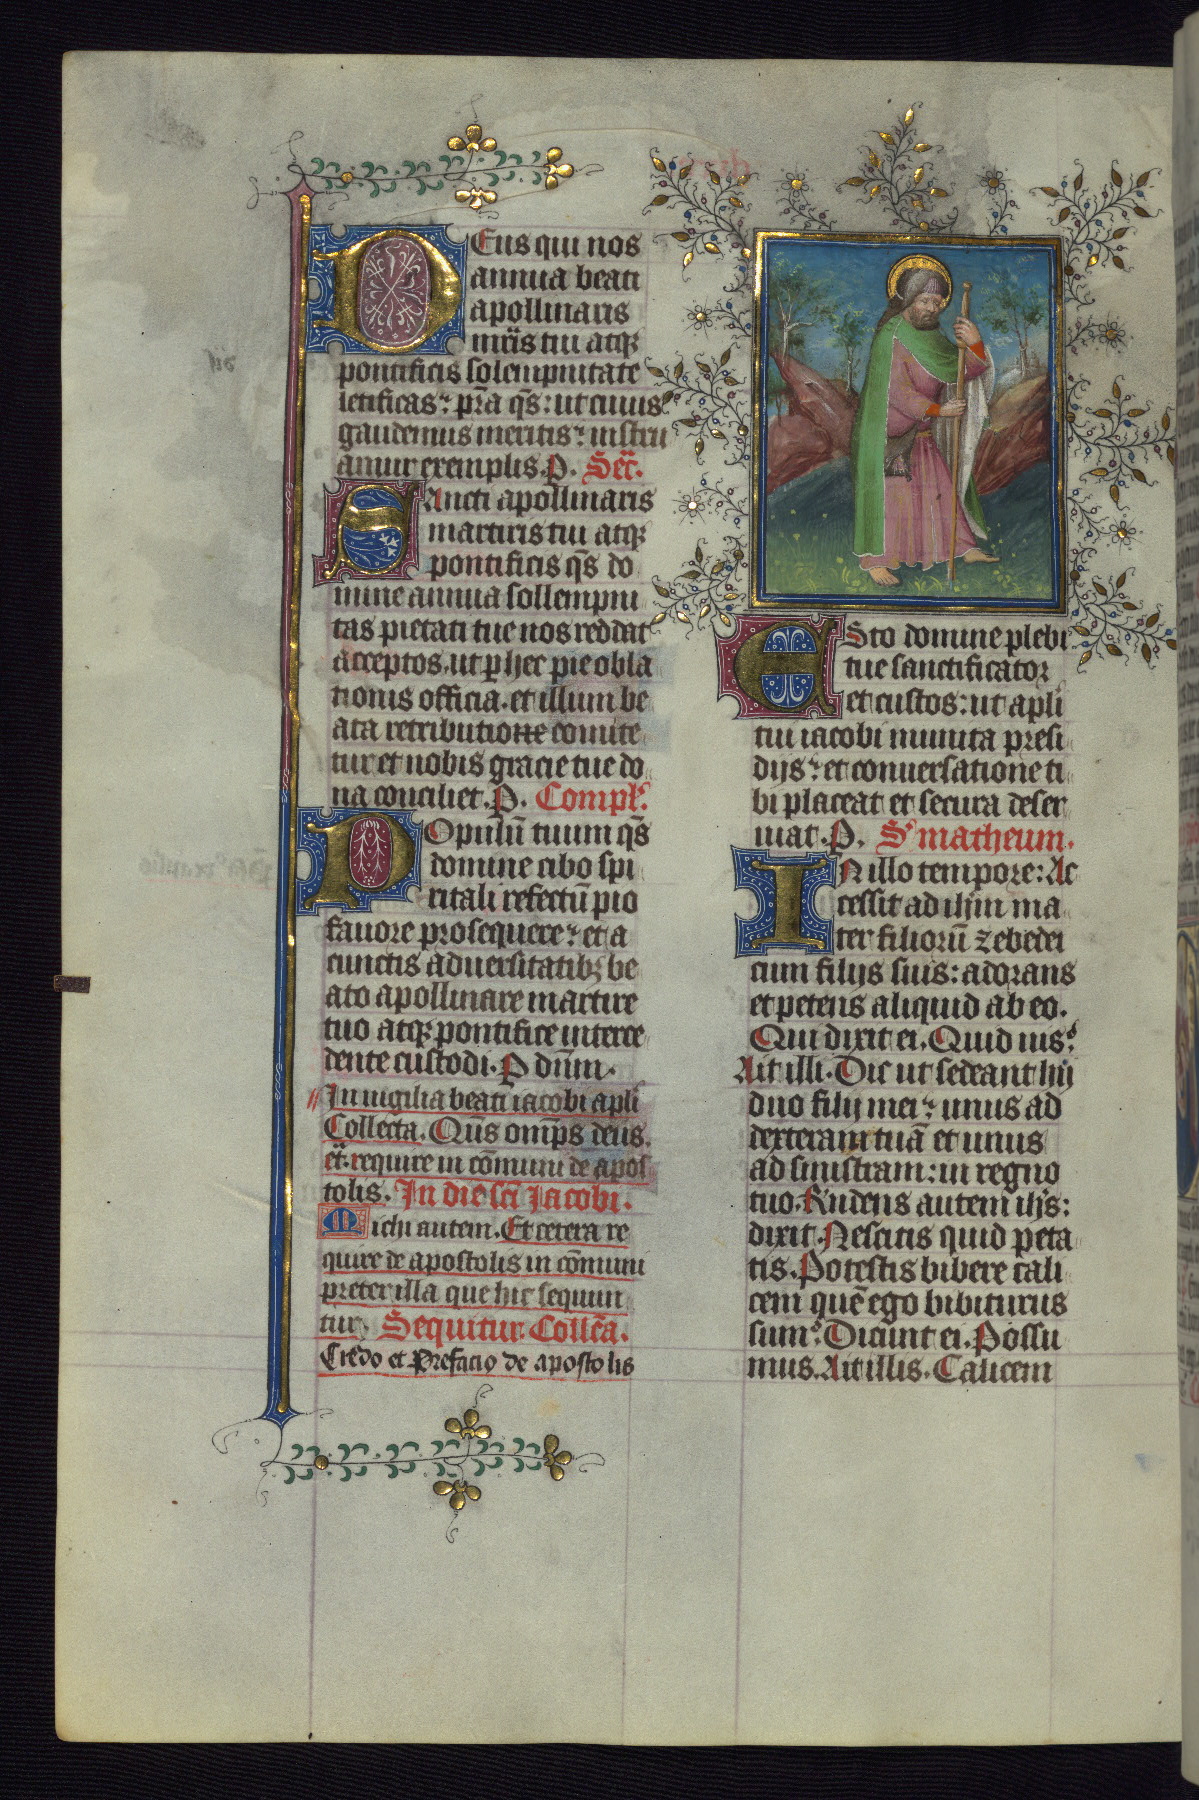 Deus qui nos
annua beati
apollinaris
mr̄is tui atqꝫ
pontificis solempnitate
letificas: pr̄a qs̄: ut cuius
gaudemus meritis: instru
amur exemplis. P. Secr̄.
Sancti apollinaris
martiris tui atqꝫ
pontificis qs̄ do
mine annua sollempni
tas pietati tue nos reddat
acceptos. ut ꝑ hec pie obla
tionis officia. et illum be
ata retributione comite
tur et nobis gracie tue do
na conciliet. P. Compl̄.
Populū tuum qs̄
domine cibo spi
ritali refectū pio
fauore prosequere: et a
cunctis aduersitatibꝫ be
ato apollinare martire
tuo atqꝫ pontifice interce
dente custodi. P dūm.
In uigilia beati iacobi apli
Collecta. Qūs omp̄s deus.
et̄. require in cōmuni de apos
tolis. In die sc̄i Jacobi.
Michi autem. Et cetera re
quire de apostolis in cōmuni
preter illa que hic sequun
tur. Sequitur Collc̄a.
Credo et Prefacio de apostolis
Esto domine plebi
tue sanctificator
et custos: ut apl̄i
tui iacobi munita presi
dijs: et conuersatione ti
bi placeat et secura deser
uiat. P. S. matheum.
In illo tempore: Ac
cessit ad ihm̄ ma
ter filiorū zebedei
cum filijs suis: adorans
et petens aliquid ab eo.
Qui dixit ei. Quid uis?
Ait illi. Dic ut sedeant hij
duo filij mei: unus ad
dexteram tuā et unus
ad sinistram: in regno
tuo. Rn̄dens autem ihs̄:
dixit. Nescitis quid peta
tis. Potestis bibere cali
cem quē ego bibiturus
sum? Dicunt ei. Possu
mus. Ait illis. Calicem